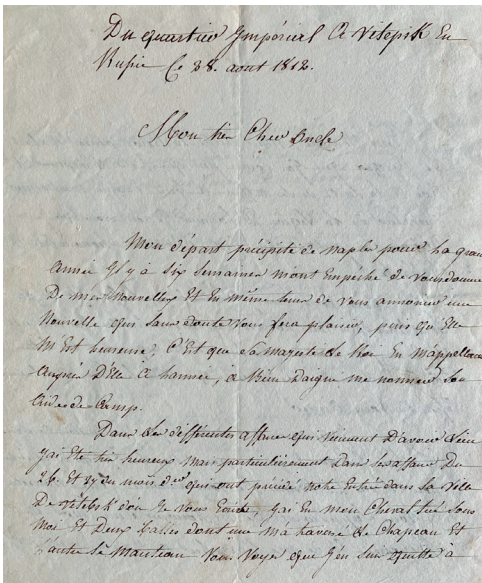 Du quartier Jmpérial A vitepsk En
Rusie Ce 28. aout 1812.
Mon très Cher oncle
Mon départ précipité de naples pour La gran
Armée Jl y à Six Semaines mont Empéché de Vous donner
De mes nouvelles Et En même tems de vous annoncer une
Nouvelle qui Sans doute Vous fera plaisir, puis qu'Elle
M'Est heureuse, C'Est que Sa majesté Le Roi En m'appellant
Auprès D'Elle A L'armée, à Bien Daigné me nommer Son
Aide de Camp.
Dans Les différentes affaires qui viennent D'avoir Lieu
j'ai Eté très heureux Mais particulièrement Dans Les affaires Du
26. Et 27 du mois d.er qui ont précédé notre Entrée dans La Ville
De vitebsk d'ou Je vous Ecris. j'ai Eu mon Cheval tué Sous
Moi Et Deux balles dont une m'a traversé Le Chapeau Et
L'autre Le Manteau Vous Voyez que J'en Suis quitte à